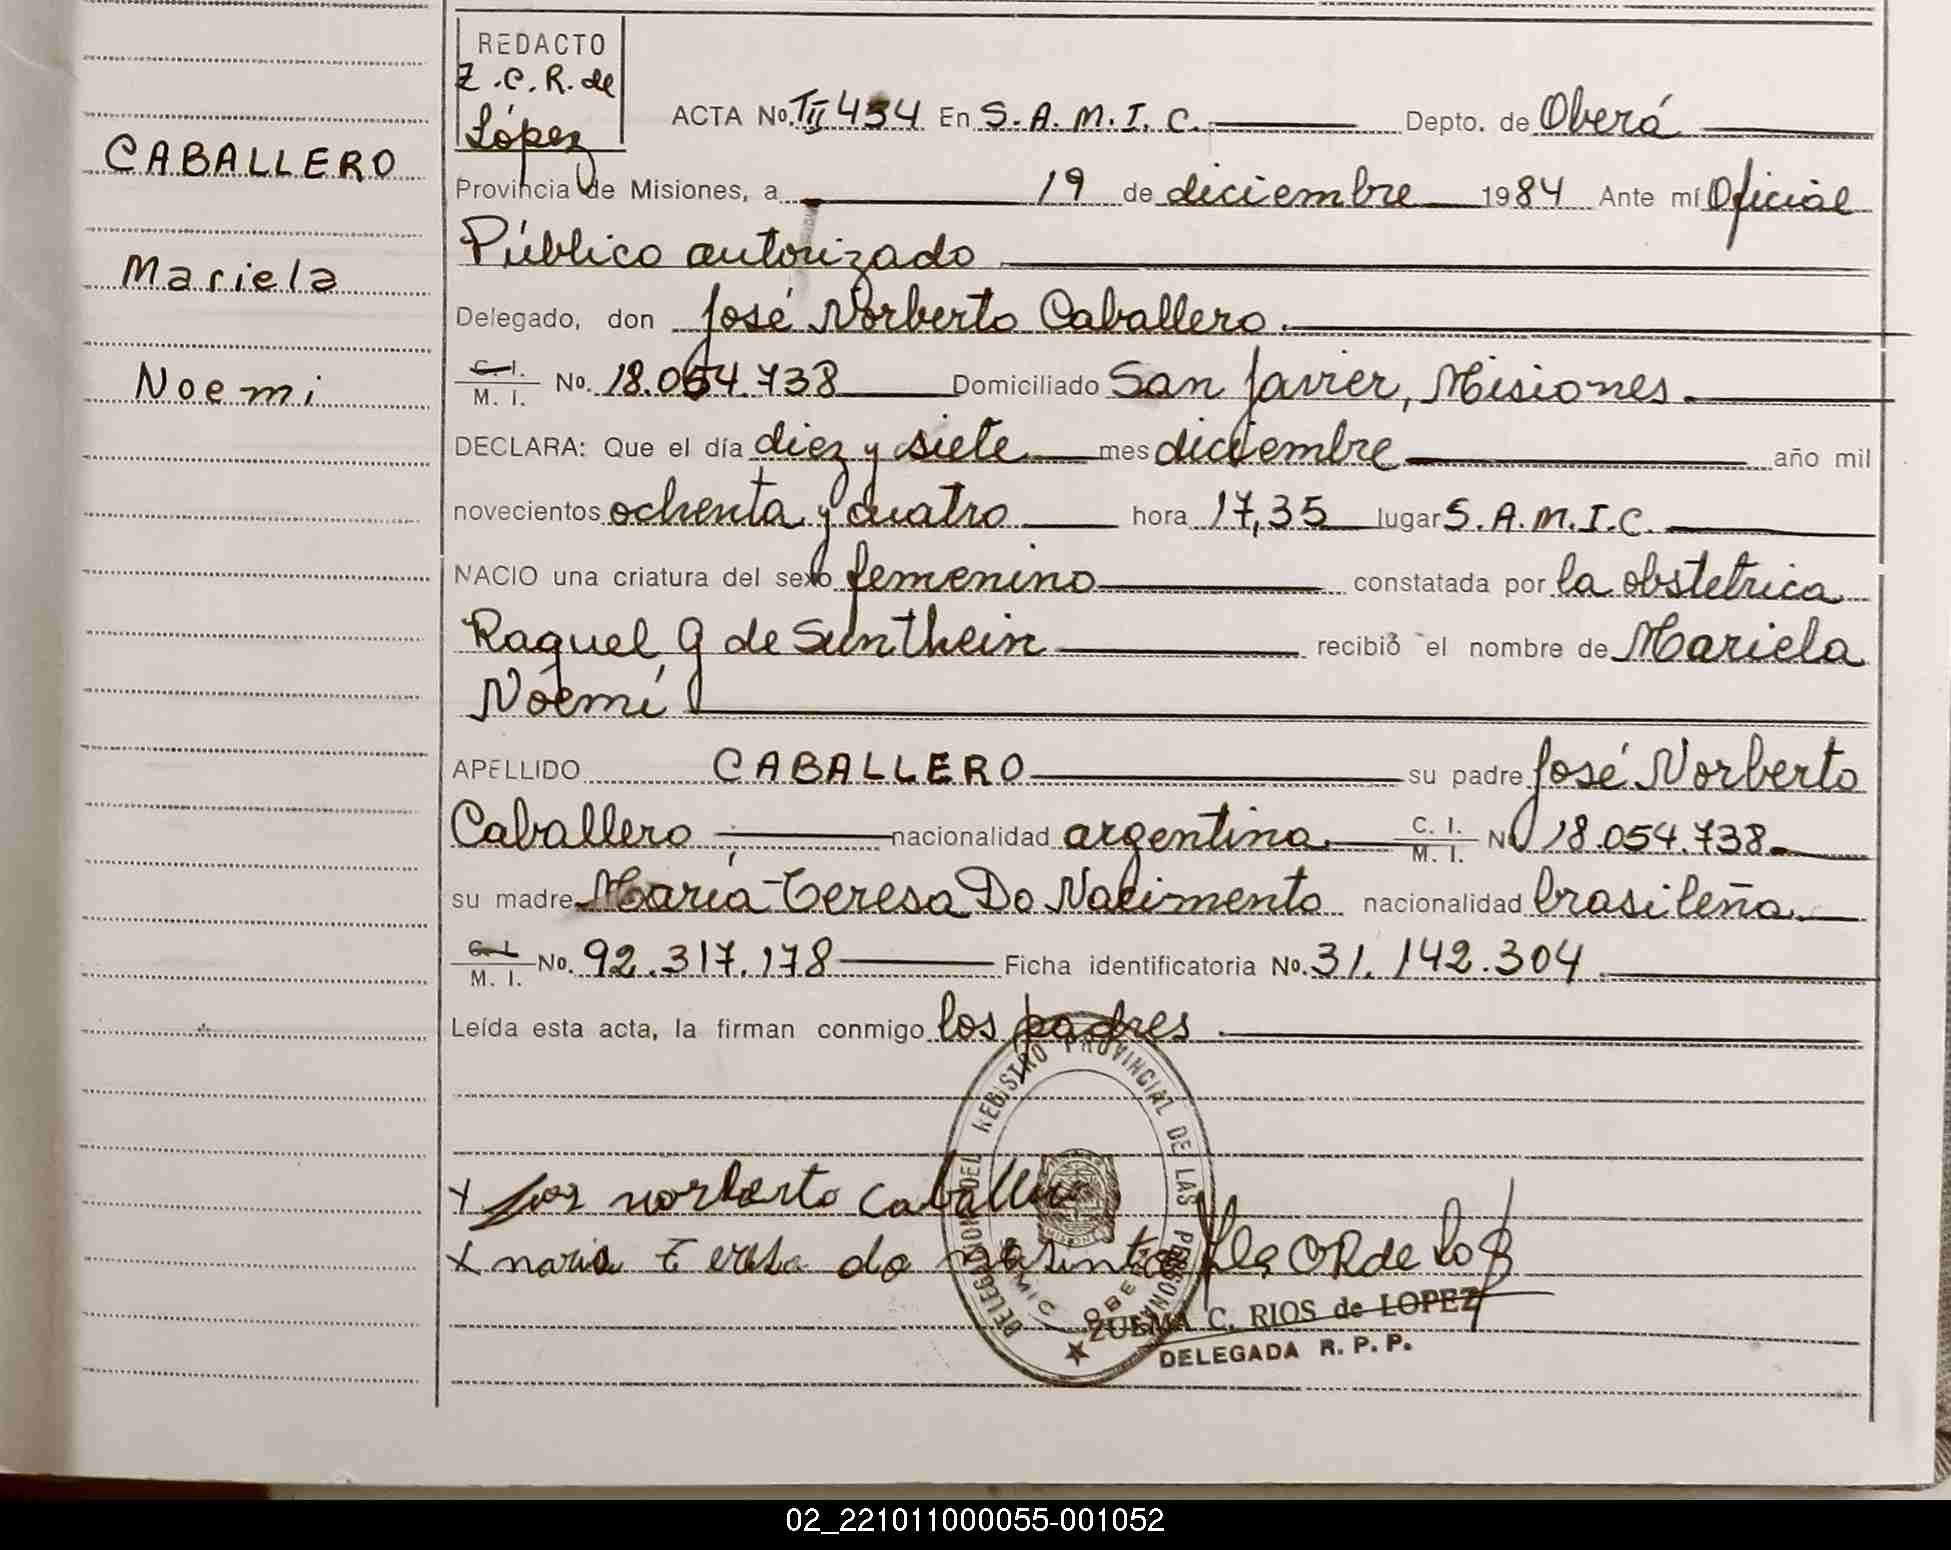 REDACTO
Z.C.R. de
López
ACTA No. TII 454 En S.A.M.I.C. Depto. de Oberá
CABALLERO
Provincia de Misiones, a 19 de diciembre 1984 Ante mí Oficial
Público autorizado
Mariela
Delegado, don José Norberto Caballero.
Noemi
C. I.
M. I. No. 18.054.738 Domiciliado San Javier, Misiones.
DECLARA: Que el día diez y siete mes diciembre año mil
novecientos ochenta y cuatro hora 17,35 lugar S.A.M.I.C.
NACIO una criatura del sexo femenino constatada por la obstetrica
Raquel G de Sunthein recibió el nombre de Mariela
Noemí
APELLIDO CABALLERO su padre José Norberto
Caballero nacionalidad argentina C. I.
M. I. No 18.054.738
su madre María Teresa Do Nacimento nacionalidad brasileña
C. I.
M. I. No. 92.317.178 Ficha identificatoria No. 31.142.304
Leída esta acta, la firman conmigo los padres.
DELEGACION DEL REGISTRO PROVINCIAL DE LAS PERSONAS
MISIONES
x Jose norberto Caballero
x maria teresa do
ZULMA C. RIOS de LOPEZ
DELEGADA R. P. P.
02_221011000055-001052